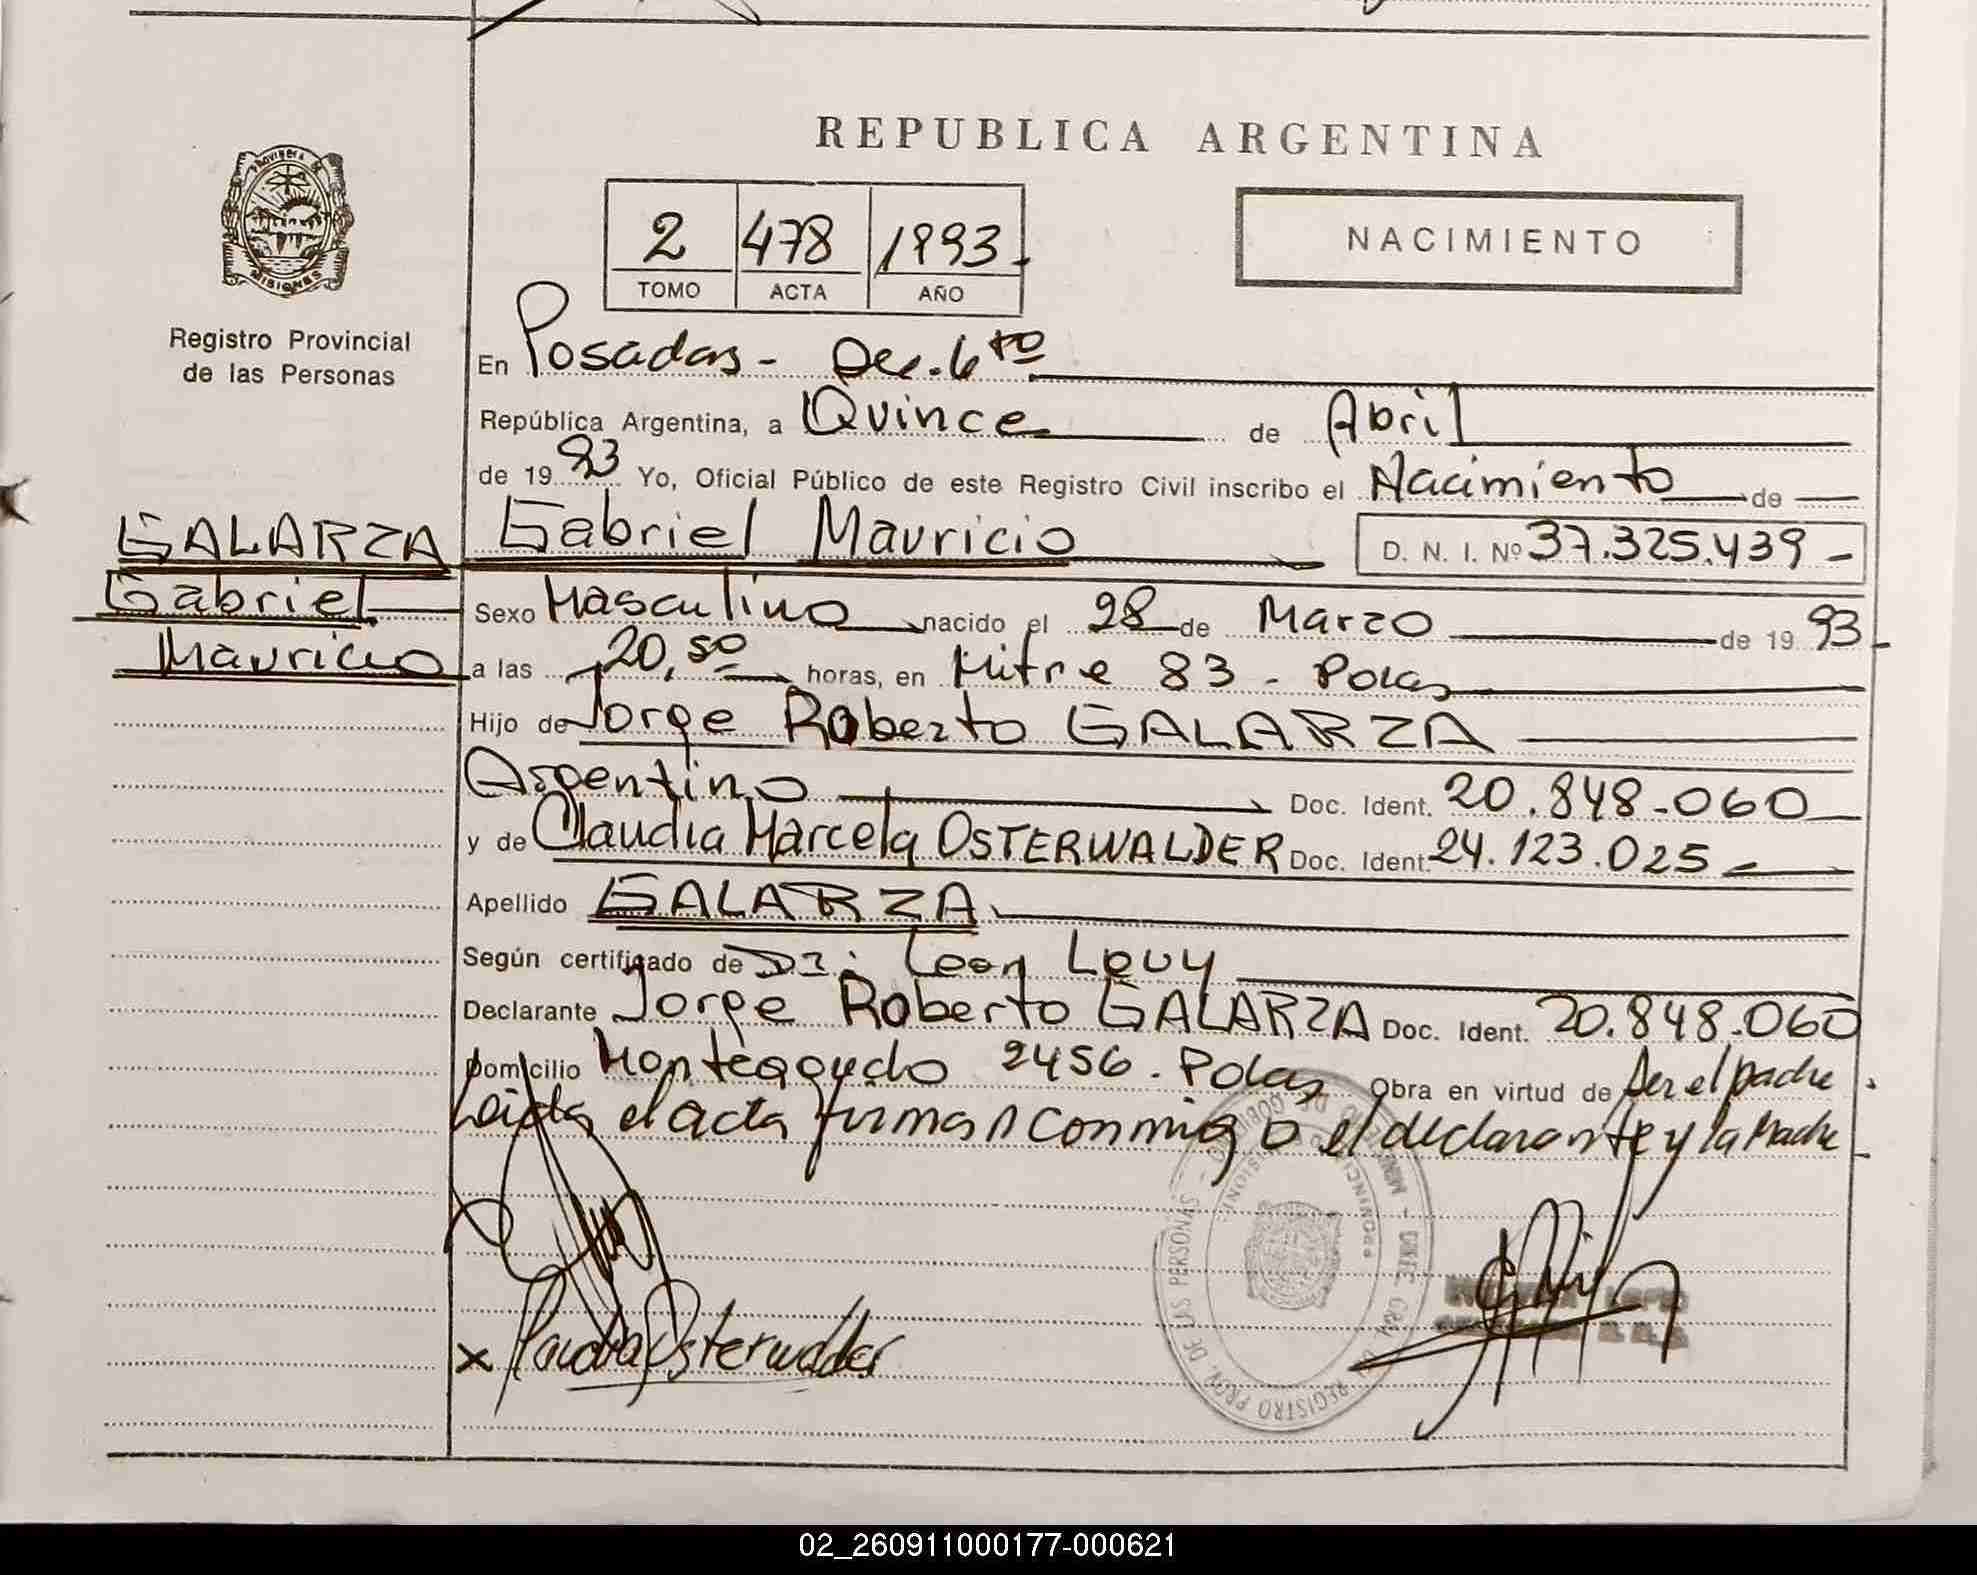 REPUBLICA ARGENTINA
Provincia de
MISIONES
Registro Provincial
de las Personas
2 478 1993
TOMO ACTA AÑO
NACIMIENTO
En Posadas - Dec. 6to
República Argentina, a Quince de Abril
de 1993 Yo, Oficial Público de este Registro Civil inscribo el Nacimiento de
GALARZA
Gabriel
Mauricio
Gabriel Mauricio D. N. I. Nº 37.325.439 -
Sexo Masculino nacido el 28 de Marzo de 1993
a las 20,50 horas, en Mitre 83 - Pdas
Hijo de Jorge Roberto GALARZA
Argentino Doc. Ident. 20.848.060
y de Claudia Marcela OSTERWALDER Doc. Ident. 24.123.025
Apellido GALARZA
Según certificado de Dr. Leon Levy
Declarante Jorge Roberto GALARZA Doc. Ident. 20.848.060
Domicilio Monteagudo 2456 - Pdas Obra en virtud de ser el padre
Leida el acta firman conmigo el declarante y la Madre
x Claudia Osterwalder
REGISTRO PROV. DE LAS PERSONAS
02_260911000177-000621